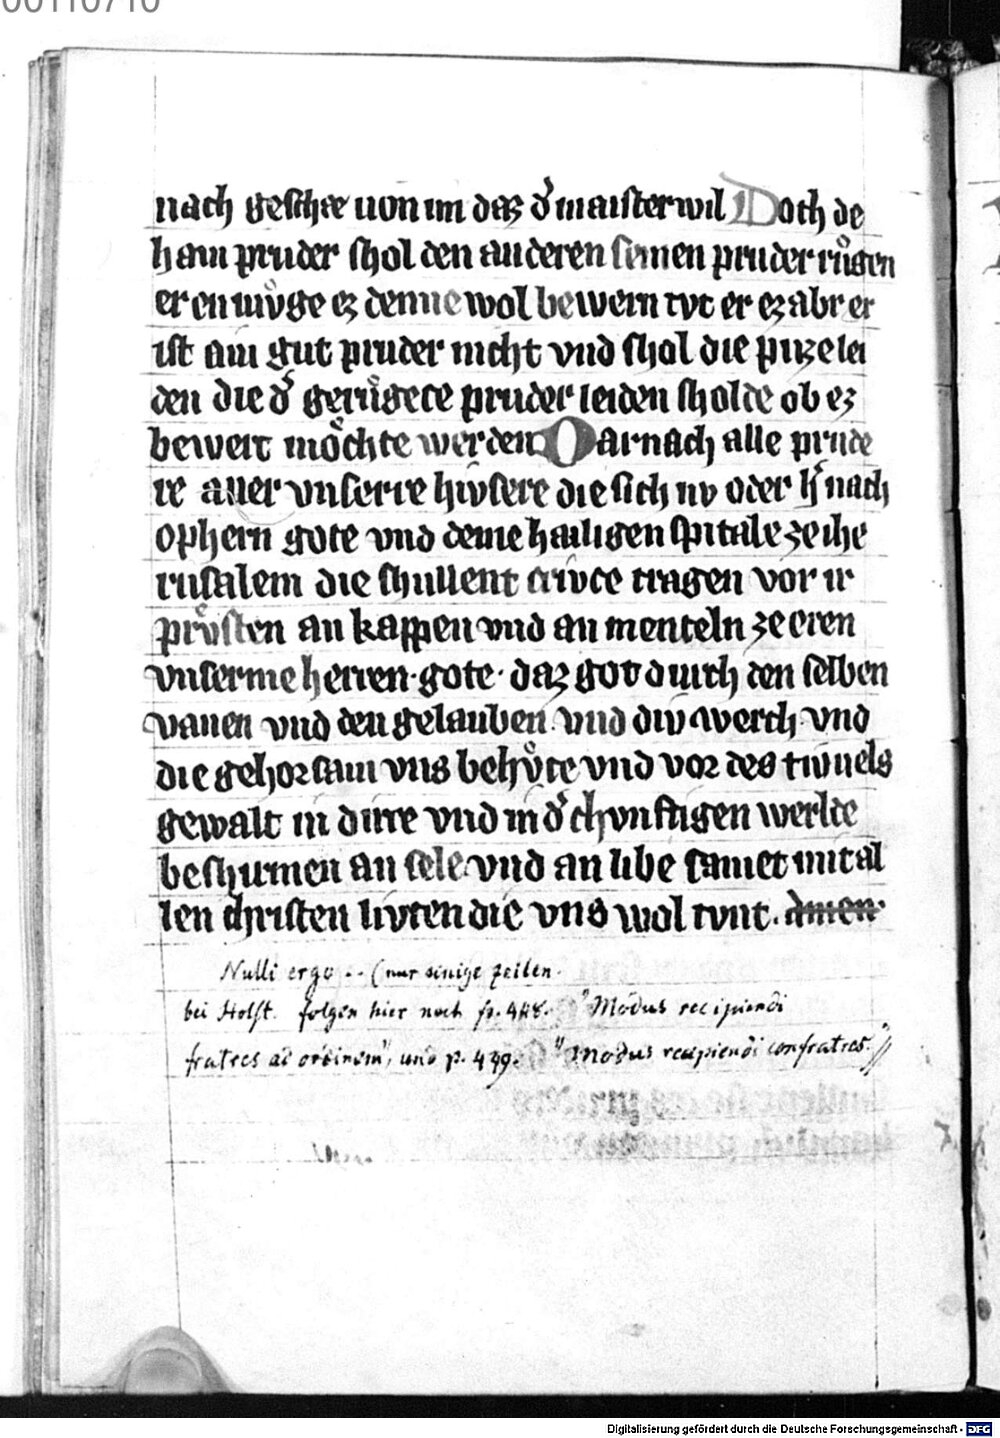 00110710
nach geschæ uon im daz d᷎ maister wil Doch de
hain pruder shol den anderen seinen pruder ruͦgen
er en muͦge ez denne wol bewern tvt er ez abr er
ist ain gut pruder nicht vnd shol die puze lei
den die d᷎ geruͦgete pruder leiden sholde ob ez
bewert moͤchte werden Darnach alle prude
re aller vnserre hivsere die sich nv oder h᷎nach
ophern gote vnd deme hailigen spitale ze ihe
rusalem die shullent crivce tragen vor ir
pruͦsten an kappen vnd an menteln ze eren
vnserme herren · gote · daz got durch den selben
vanen vnd den gelauben · vnd div werch · vnd
die gehorsam vns behuͦte vnd vor des tivuels
gewalt in dirre vnd in d᷎ chvnftigen werlde
beshirmen an sele vnd an libe samet mit al
len christen livten die vns wol tvnt · amen ·
Nulli ergo .. (nur einige zeilen.
bei Holst. folgen hier noch p. 448. "Modus recipiendi
fratres ad ordinem", und p. 449. "Modus recipiendi confratres."
Digitalisierung gefördert durch die Deutsche Forschungsgemeinschaft - DFG